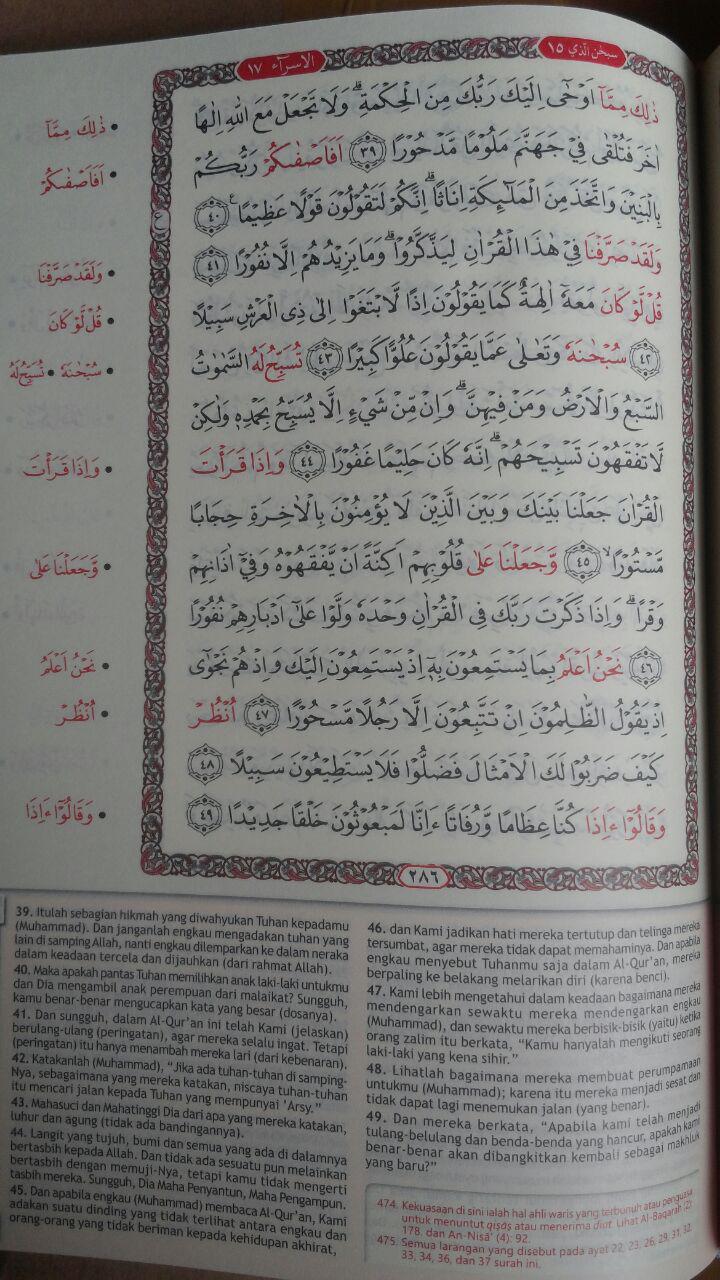 سبحن الذي ١٥
الاسرآء ١٧
ذٰلِكَ مِمَّآ اَوْحٰٓى اِلَيْكَ رَبُّكَ مِنَ الْحِكْمَةِۗ وَلَا تَجْعَلْ مَعَ اللّٰهِ اِلٰهًا
اٰخَرَ فَتُلْقٰى فِيْ جَهَنَّمَ مَلُوْمًا مَّدْحُوْرًا ٣٩ اَفَاَصْفٰىكُمْ رَبُّكُمْ
بِالْبَنِيْنَ وَاتَّخَذَ مِنَ الْمَلٰۤىِٕكَةِ اِنَاثًاۗ اِنَّكُمْ لَتَقُوْلُوْنَ قَوْلًا عَظِيْمًا ࣖ ٤٠
وَلَقَدْ صَرَّفْنَا فِيْ هٰذَا الْقُرْاٰنِ لِيَذَّكَّرُوْاۗ وَمَا يَزِيْدُهُمْ اِلَّا نُفُوْرًا ٤١
قُلْ لَّوْ كَانَ مَعَهٗٓ اٰلِهَةٌ كَمَا يَقُوْلُوْنَ اِذًا لَّابْتَغَوْا اِلٰى ذِى الْعَرْشِ سَبِيْلًا
٤٢ سُبْحٰنَهٗ وَتَعٰلٰى عَمَّا يَقُوْلُوْنَ عُلُوًّا كَبِيْرًا ٤٣ تُسَبِّحُ لَهُ السَّمٰوٰتُ
السَّبْعُ وَالْاَرْضُ وَمَنْ فِيْهِنَّۗ وَاِنْ مِّنْ شَيْءٍ اِلَّا يُسَبِّحُ بِحَمْدِهٖ وَلٰكِنْ
لَّا تَفْقَهُوْنَ تَسْبِيْحَهُمْۗ اِنَّهٗ كَانَ حَلِيْمًا غَفُوْرًا ٤٤ وَاِذَا قَرَأْتَ
الْقُرْاٰنَ جَعَلْنَا بَيْنَكَ وَبَيْنَ الَّذِيْنَ لَا يُؤْمِنُوْنَ بِالْاٰخِرَةِ حِجَابًا
مَّسْتُوْرًاۙ ٤٥ وَّجَعَلْنَا عَلٰى قُلُوْبِهِمْ اَكِنَّةً اَنْ يَّفْقَهُوْهُ وَفِيْٓ اٰذَانِهِمْ
وَقْرًاۗ وَاِذَا ذَكَرْتَ رَبَّكَ فِى الْقُرْاٰنِ وَحْدَهٗ وَلَّوْا عَلٰٓى اَدْبَارِهِمْ نُفُوْرًا
٤٦ نَحْنُ اَعْلَمُ بِمَا يَسْتَمِعُوْنَ بِهٖٓ اِذْ يَسْتَمِعُوْنَ اِلَيْكَ وَاِذْ هُمْ نَجْوٰٓى
اِذْ يَقُوْلُ الظّٰلِمُوْنَ اِنْ تَتَّبِعُوْنَ اِلَّا رَجُلًا مَّسْحُوْرًا ٤٧ اُنْظُرْ
كَيْفَ ضَرَبُوْا لَكَ الْاَمْثَالَ فَضَلُّوْا فَلَا يَسْتَطِيْعُوْنَ سَبِيْلًا ٤٨
وَقَالُوْٓا ءَاِذَا كُنَّا عِظَامًا وَّرُفَاتًا ءَاِنَّا لَمَبْعُوْثُوْنَ خَلْقًا جَدِيْدًا ٤٩
٢٨٦
• ذٰلِكَ مِمَّآ
• اَفَاَصْفٰىكُمْ
ع
• وَلَقَدْ صَرَّفْنَا
• قُلْ لَّوْ كَانَ
• سُبْحٰنَهٗ • تُسَبِّحُ لَهُ
• وَاِذَا قَرَأْتَ
• وَّجَعَلْنَا عَلٰى
• نَحْنُ اَعْلَمُ
• اُنْظُرْ
• وَقَالُوْٓا ءَاِذَا
39. Itulah sebagian hikmah yang diwahyukan Tuhan kepadamu
(Muhammad). Dan janganlah engkau mengadakan tuhan yang
lain di samping Allah, nanti engkau dilemparkan ke dalam neraka
dalam keadaan tercela dan dijauhkan (dari rahmat Allah).
40. Maka apakah pantas Tuhan memilihkan anak laki-laki untukmu
dan Dia mengambil anak perempuan dari malaikat? Sungguh,
kamu benar-benar mengucapkan kata yang besar (dosanya).
41. Dan sungguh, dalam Al-Qur'an ini telah Kami (jelaskan)
berulang-ulang (peringatan), agar mereka selalu ingat. Tetapi
(peringatan) itu hanya menambah mereka lari (dari kebenaran).
42. Katakanlah (Muhammad), "Jika ada tuhan-tuhan di samping-
Nya, sebagaimana yang mereka katakan, niscaya tuhan-tuhan
itu mencari jalan kepada Tuhan yang mempunyai 'Arsy."
43. Mahasuci dan Mahatinggi Dia dari apa yang mereka katakan,
luhur dan agung (tidak ada bandingannya).
44. Langit yang tujuh, bumi dan semua yang ada di dalamnya
bertasbih kepada Allah. Dan tidak ada sesuatu pun melainkan
bertasbih dengan memuji-Nya, tetapi kamu tidak mengerti
tasbih mereka. Sungguh, Dia Maha Penyantun, Maha Pengampun.
45. Dan apabila engkau (Muhammad) membaca Al-Qur'an, Kami
adakan suatu dinding yang tidak terlihat antara engkau dan
orang-orang yang tidak beriman kepada kehidupan akhirat,
46. dan Kami jadikan hati mereka tertutup dan telinga mereka
tersumbat, agar mereka tidak dapat memahaminya. Dan apabila
engkau menyebut Tuhanmu saja dalam Al-Qur'an, mereka
berpaling ke belakang melarikan diri (karena benci).
47. Kami lebih mengetahui dalam keadaan bagaimana mereka
mendengarkan sewaktu mereka mendengarkan engkau
(Muhammad), dan sewaktu mereka berbisik-bisik (yaitu) ketika
orang zalim itu berkata, "Kamu hanyalah mengikuti seorang
laki-laki yang kena sihir."
48. Lihatlah bagaimana mereka membuat perumpamaan
untukmu (Muhammad); karena itu mereka menjadi sesat dan
tidak dapat lagi menemukan jalan (yang benar).
49. Dan mereka berkata, "Apabila kami telah menjadi
tulang-belulang dan benda-benda yang hancur, apakah kami
benar-benar akan dibangkitkan kembali sebagai makhluk
yang baru?"
474. Kekuasaan di sini ialah hal ahli waris yang terbunuh atau penguasa
untuk menuntut qiṣāṣ atau menerima diat. Lihat Al-Baqarah (2):
178. dan An-Nisā' (4): 92.
475. Semua larangan yang disebut pada ayat 22, 23, 26, 29, 31, 32,
33, 34, 36, dan 37 surah ini.